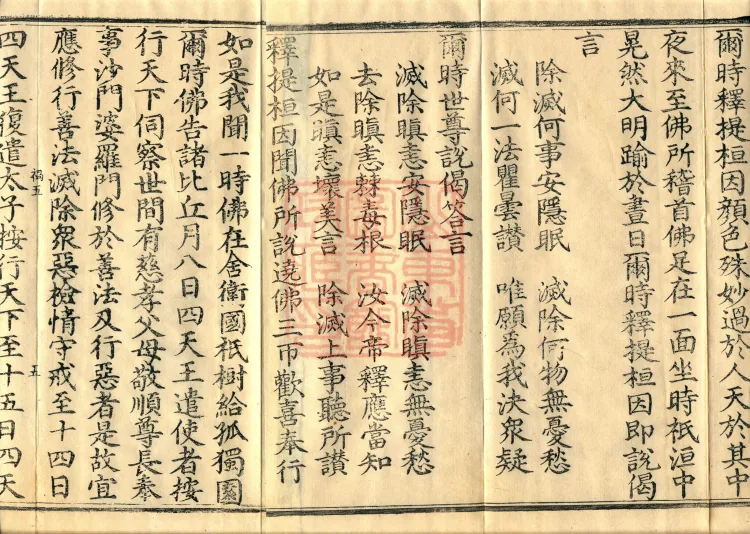 爾時釋提桓因顏色殊妙過於人天於其中
夜來至佛所稽首佛足在一面坐時祇洹中
晃然大明踰於晝日爾時釋提桓因即說偈
言
除滅何事安隱眠　滅除何物無憂愁
滅何一法瞿曇讚　唯願為我決眾疑
爾時世尊說偈答言
滅除瞋恚安隱眠　滅除瞋恚無憂愁
去除瞋恚棘毒根　汝今帝釋應當知
如是瞋恚壞美言　除滅上事聽所讚
釋提桓因聞佛所說遶佛三帀歡喜奉行
如是我聞一時佛在舍衛國祇樹給孤獨園
爾時佛告諸比丘月八日四天王遣使者按
行天下伺察世間有慈孝父母敬順尊長奉
事沙門婆羅門修於善法及行惡者是故宜
應修行善法滅除眾惡檢情守戒至十四日
禍五　五
四天王復遣太子按行天下至十五日四天